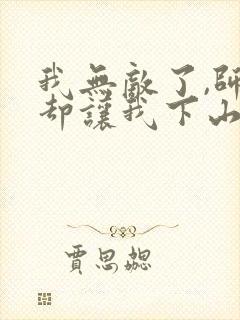 我無敵了,師
却讓我下山
賈思勰